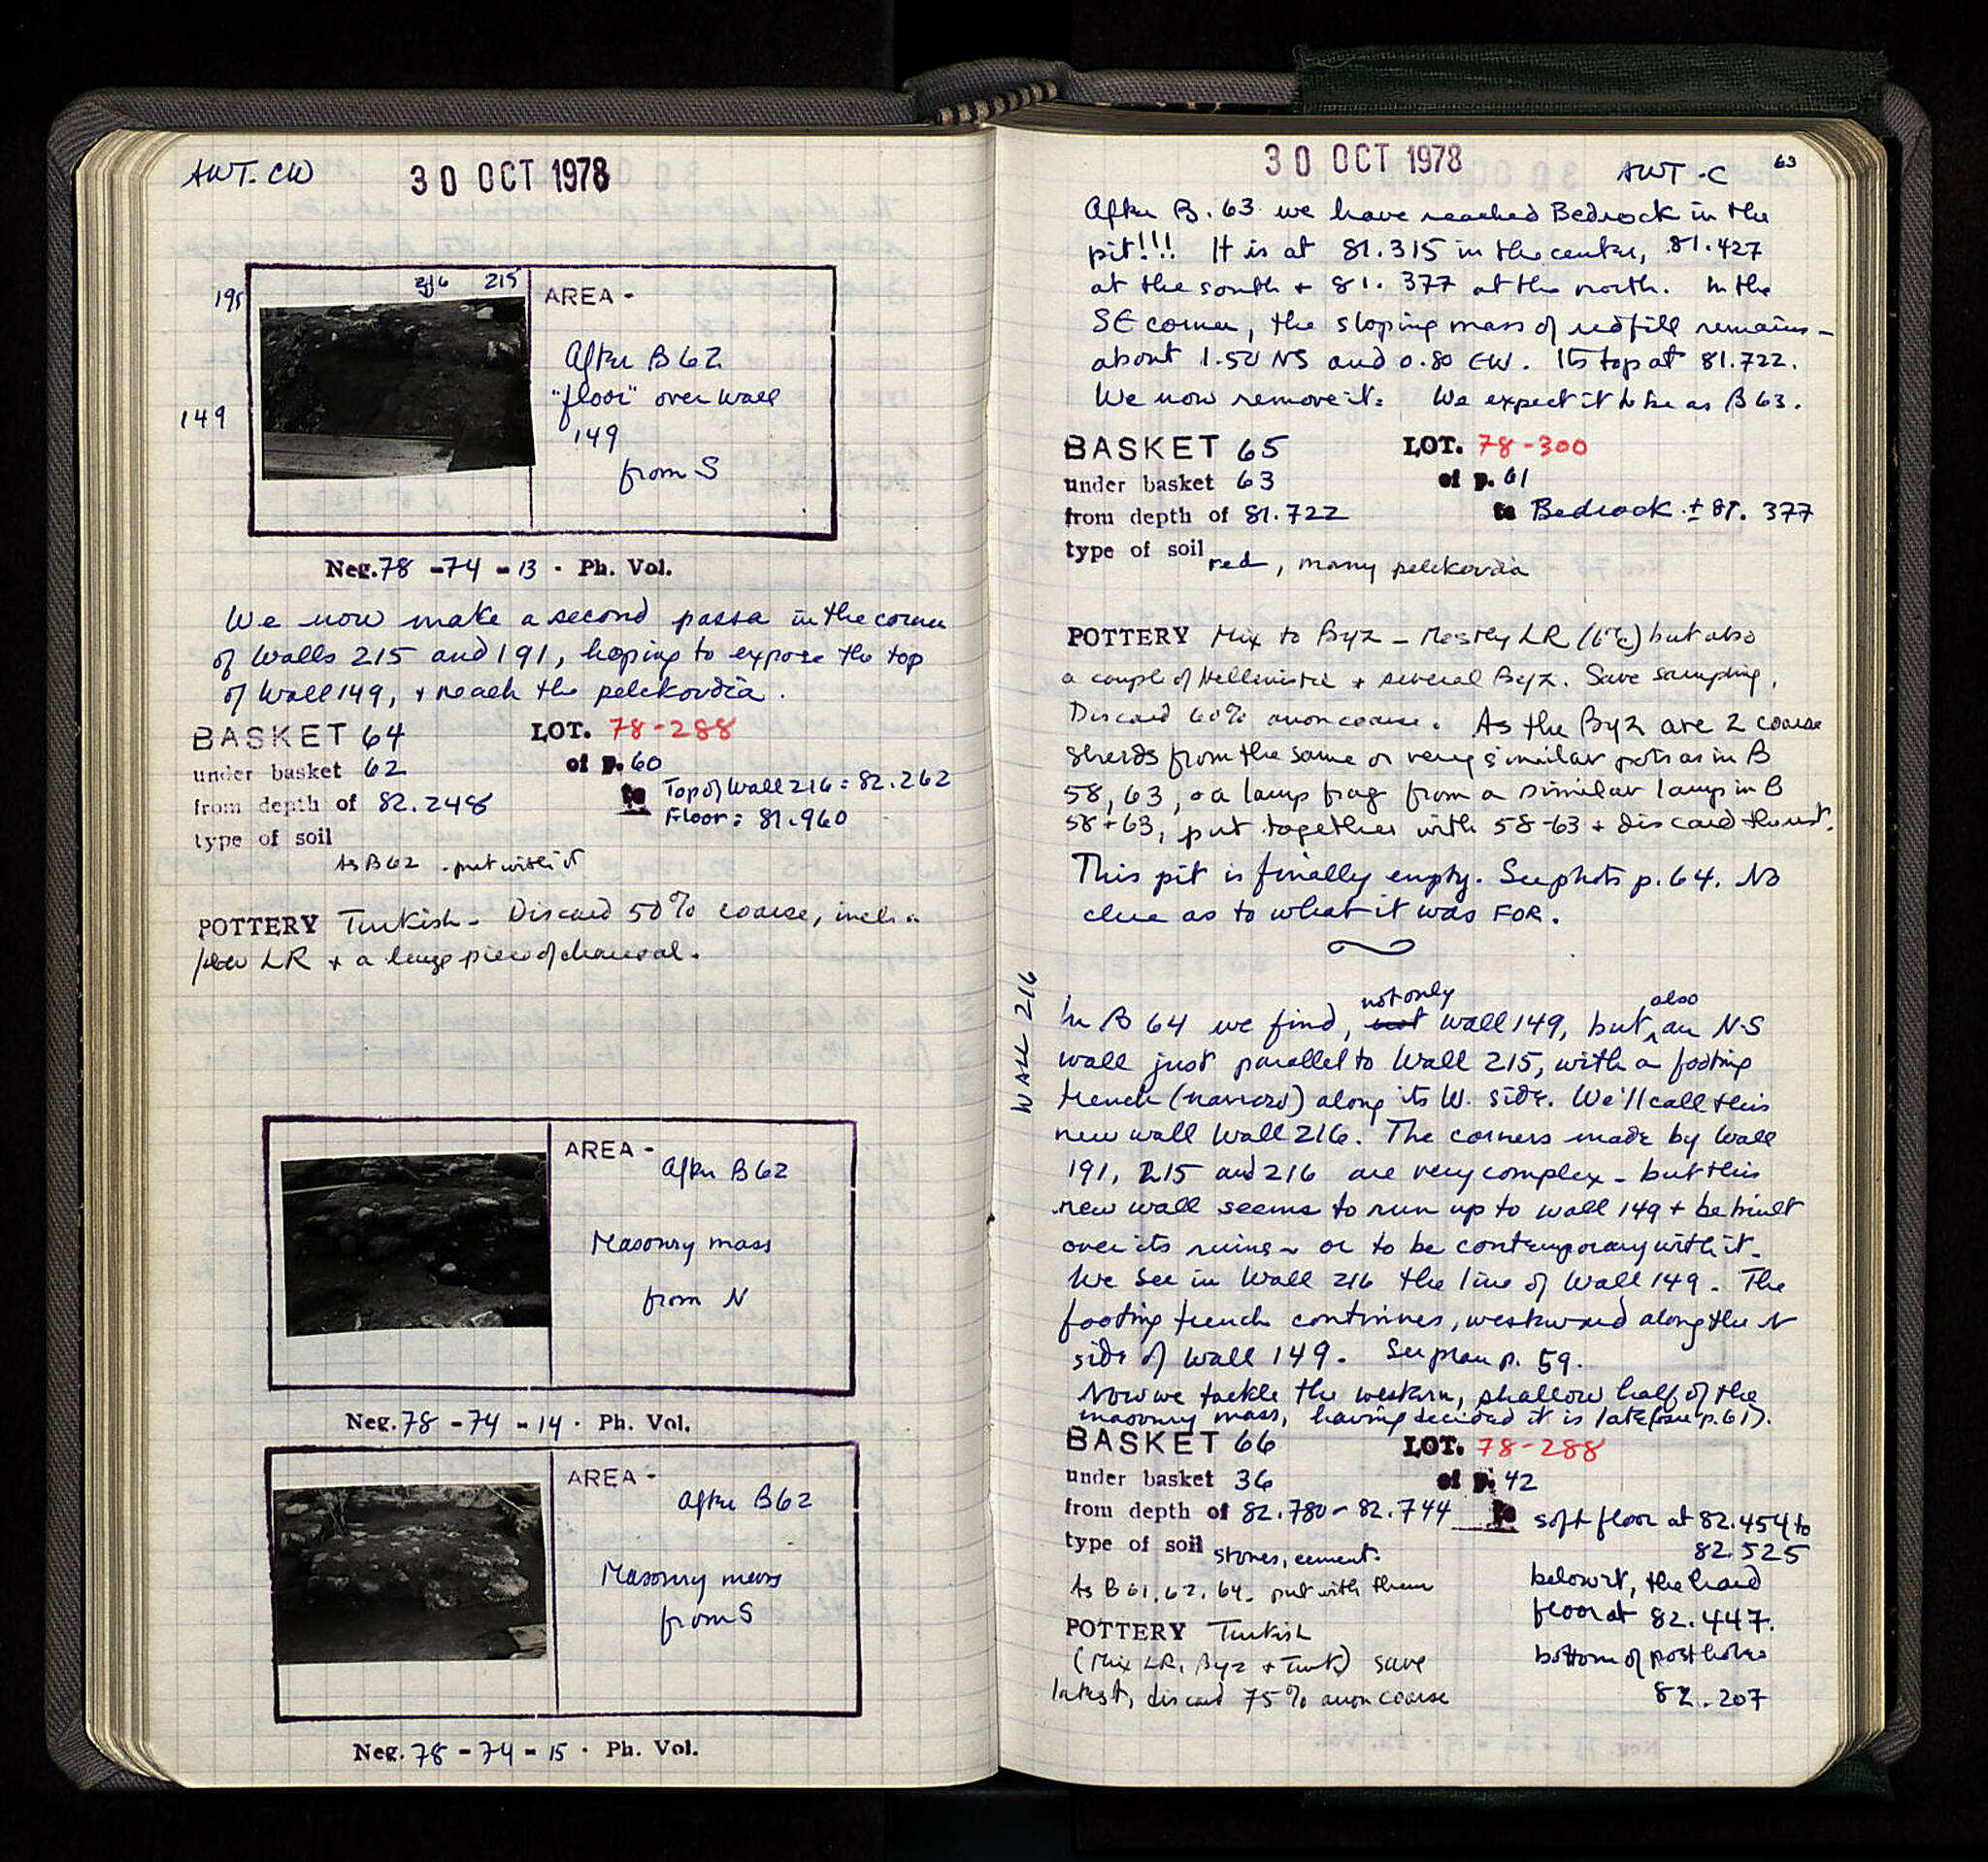 AWT. CW
30 OCT 1978
216 215
149
AREA -
After B 62
"floor" over wall
149
from S
Neg. 78 - 74 - 13 · Ph. Vol.
We now make a second passa in the corner
of Walls 215 and 191, hoping to expose the top
of Wall 149, + reach the pelekoudia.
BASKET 64 LOT. 78-288
under basket 62 of p. 60
from depth of 82.248 to Top of Wall 216 = 82.262
Floor = 81.960
type of soil
As B 62 - put with it
POTTERY Turkish - Discard 50% coarse, incl. a
few LR + a large piece of charcoal.
AREA -
After B 62
Masonry mass
from N
Neg. 78 - 74 - 14 · Ph. Vol.
AREA -
After B 62
Masonry mass
from S
Neg. 78 - 74 - 15 · Ph. Vol.
30 OCT 1978
AWT - C
63
After B. 63 we have reached Bedrock in the
pit!!! It is at 81.315 in the center, 81.427
at the south + 81.377 at the north. In the
SE corner, the sloping mass of red fill remains -
about 1.50 NS and 0.80 EW. Its top at 81.722.
We now remove it. We expect it to be as B 63.
BASKET 65 LOT. 78-300
under basket 63 of p. 61
from depth of 81.722 to Bedrock ± 81.377
type of soil red, many pelekoudia
POTTERY Mix to Byz - Mostly LR (6c) but also
a couple of Hellenistic + several Byz. Save sampling.
Discard 60% anon coarse. As the Byz are 2 coarse
sherds from the same or very similar pots as in B
58, 63, + a lamp frag from a similar lamp in B
58 + 63, put together with 58-63 + discard the rest.
This pit is finally empty. See photo p. 64. No
clue as to what it was FOR.
WALL 216
In B 64 we find, not only wall 149, but also an N-S
wall just parallel to Wall 215, with a footing
trench (narrow) along its W. side. We'll call this
new wall Wall 216. The corners made by Wall
191, 215 and 216 are very complex - but this
new wall seems to run up to wall 149 + be built
over its ruins - or to be contemporary with it.
We see in Wall 216 the line of Wall 149. The
footing trench continues, westward along the N
side of Wall 149. See plan p. 59.
Now we tackle the western, shallow half of the
masonry mass, having decided it is late (see p. 61).
BASKET 66 LOT. 78-288
under basket 36 of p. 42
from depth of 82.780 - 82.744 to soft floor at 82.454 to
82.525
type of soil stones, cement.
below it, the hard
floor at 82.447.
bottom of post holes
82.207
As B 61, 62, 64. put with them
POTTERY Turkish
(Mix LR, Byz + Turk) save
latest, discard 75% anon coarse